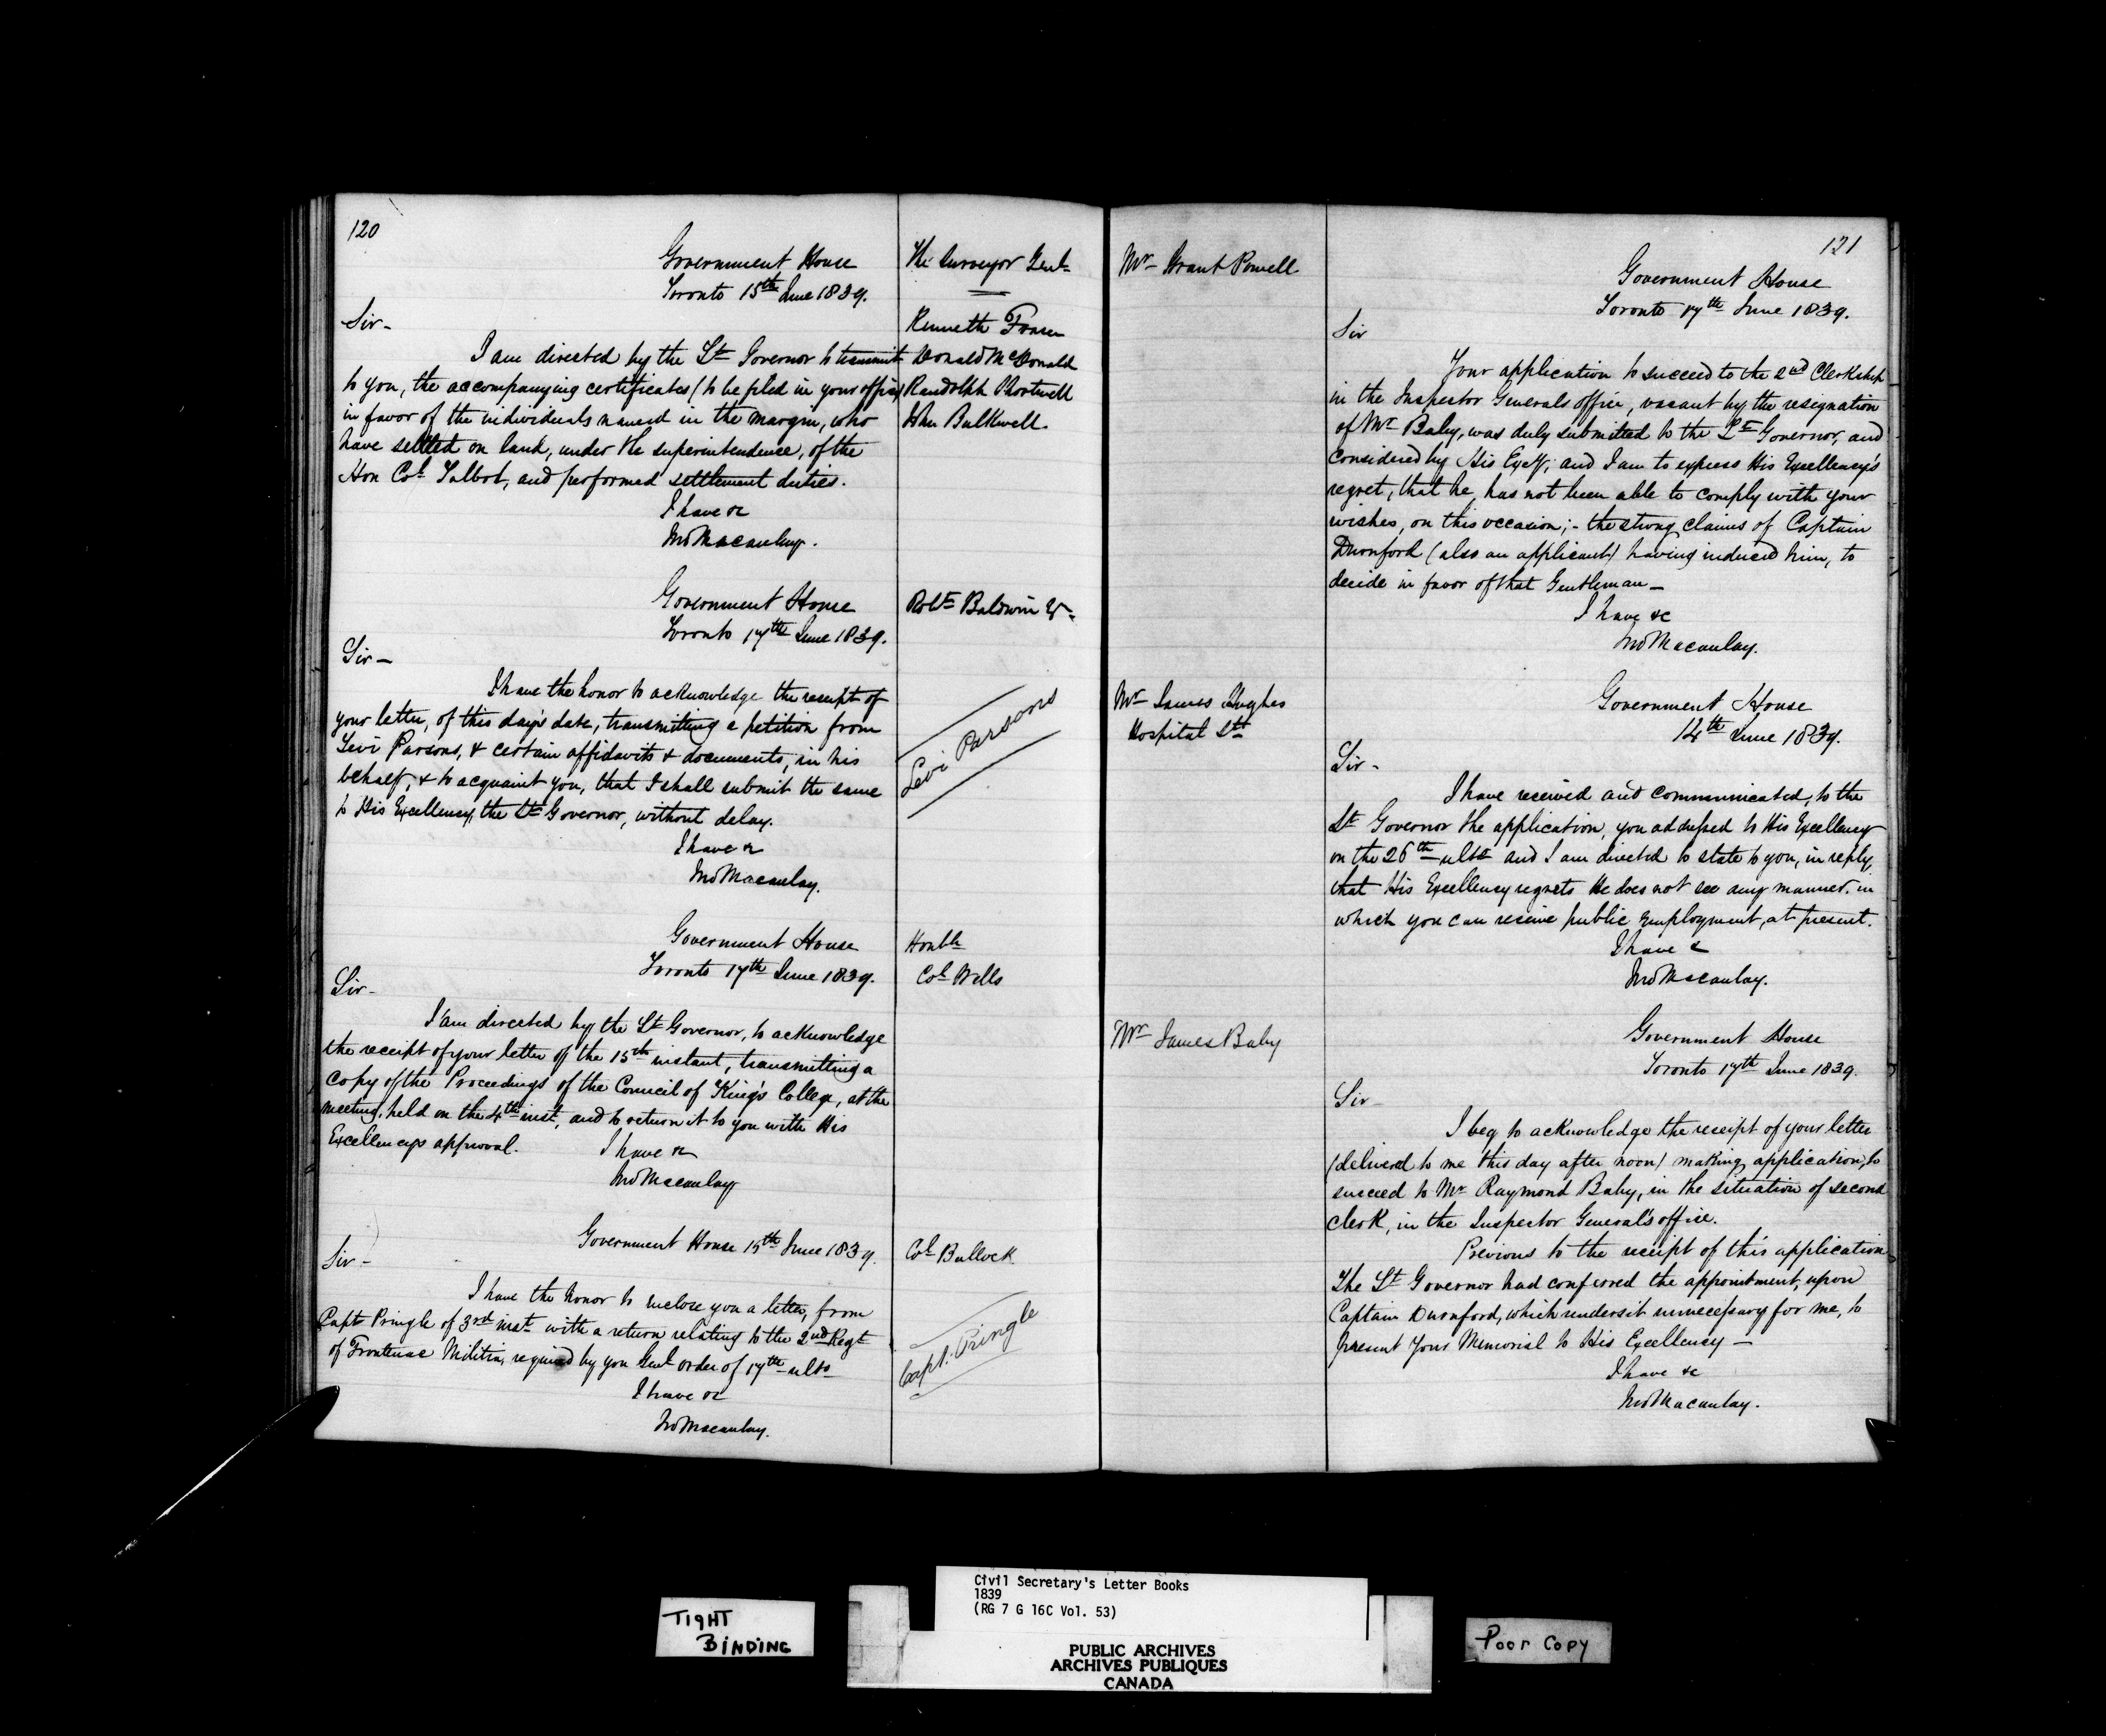 120
Government House
Toronto 15th June 1839.
The Surveyor Genl
Kenneth Fraser
Donald McDonald
Randolph Shortwell
John Bulkwell.
Sir-
I am directed by the Lt Governor to transmit
to you, the accompanying certificates (to be filed in your office)
in favor of the individuals named in the margin, who
have settled on land, under the superintendence, of the
Hon Col Talbot, and performed settlement duties.
I have &c
Jno Macaulay.
Government House
Toronto 17th June 1839.
Robt Baldwin Esqr
Sir-
Levi Parsons
I have the honor to acknowledge the receipt of
your letter, of this day's date, transmitting a petition from
Levi Parsons, & certain affidavits & documents, in his
behalf, & to acquaint you, that I shall submit the same
to His Excellency, the Lt Governor, without delay.
I have &c
Jno Macaulay.
Government House
Toronto 17th June 1839.
Honble
Col Wells
Sir-
I am directed by the Lt Governor, to acknowledge
the receipt of your letter of the 15th instant, transmitting a
copy of the Proceedings of the Council of King's College, at the
meeting, held on the 4th inst, and to return it to you with His
Excellencys approval.
I have &c
Jno Macaulay
Government House 15th June 1839.
Col Bullock
Sir-
Capt. Pringle
I have the honor to enclose you a letter, from
Capt Pringle of 3rd inst with a return relating to the 2nd Regt
of Frontenac Militia, required by you Genl order of 17th ulto
I have &c
Jno Macaulay.
121
Mr Grant Powell
Government House
Toronto 17th June 1839.
Sir
Your application to succeed to the 2nd Clerkship
in the Inspector Generals office, vacant by the resignation
of Mr Baby, was duly submitted to the Lt Governor, and
considered by His Excy; and I am to express His Excellency's
regret, that he, has not been able to comply with your
wishes, on this occasion; - the strong claims of Captain
Durnford (also an applicant) having induced him, to
decide in favor of that Gentleman -
I have &c
Jno Macaulay.
Mr James Hughes
Hospital Stt
Government House
14th June 1839.
Sir-
I have received and communicated, to the
Lt Governor the application, you addressed to His Excellency
on the 26th ulto and I am directed to state to you, in reply,
that His Excellency regrets He does not see any manner in
which you can receive public employment, at present.
I have &
Jno Macaulay.
Mr James Baby
Government House
Toronto 17th June 1839.
Sir-
I beg to acknowledge the receipt of your letter
(delivered to me this day after noon) making application, to
succeed to Mr Raymond Baby, in the situation of second
clerk, in the Inspector General's office.
Previous to the receipt of this application
The Lt Governor had conferred the appointment, upon
Captain Durnford, which renders it unnecessary for me, to
present your Memorial to His Excellency -
I have &c
Jno Macaulay.
TIGHT
BINDING
Civil Secretary's Letter Books
1839
(RG 7 G 16C Vol. 53)
PUBLIC ARCHIVES
ARCHIVES PUBLIQUES
CANADA
Poor Copy